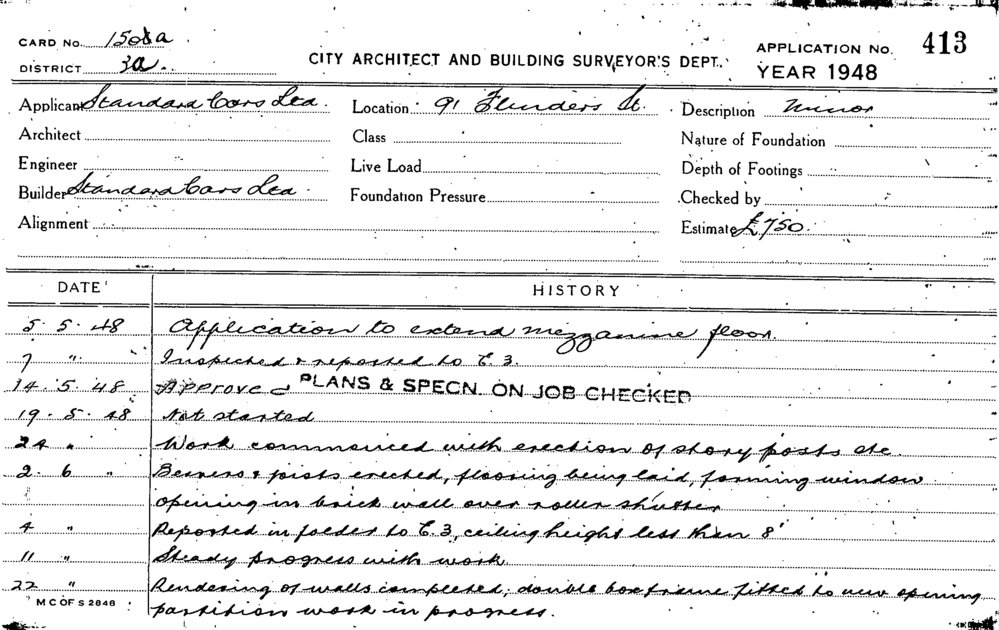 CARD No. 1508a
DISTRICT 3a.
CITY ARCHITECT AND BUILDING SURVEYOR'S DEPT.
APPLICATION No. 413
YEAR 1948
Applicant Standard Cars Ltd.
Location 91 Flinders St.
Description Minor
Architect
Class
Nature of Foundation
Engineer
Live Load
Depth of Footings
Builder Standard Cars Ltd.
Foundation Pressure
Checked by
Alignment
Estimate £750.
DATE HISTORY
5. 5. 48 Application to extend mezzanine floor.
7 " Inspected & reported to E.3.
14. 5. 48 Approved PLANS & SPECN. ON JOB CHECKED
19. 5. 48 Not started
24 " Work commenced with erection of story posts etc.
2. 6 " Bearers & joists erected, flooring being laid, forming window
opening in brick wall over roller shutter
4 " Reported in folder to E.3, ceiling height less than 8'
11 " Steady progress with work.
22 " Rendering of walls completed, double box frame fitted to new opening
partition work in progress.
M C OF S 2848